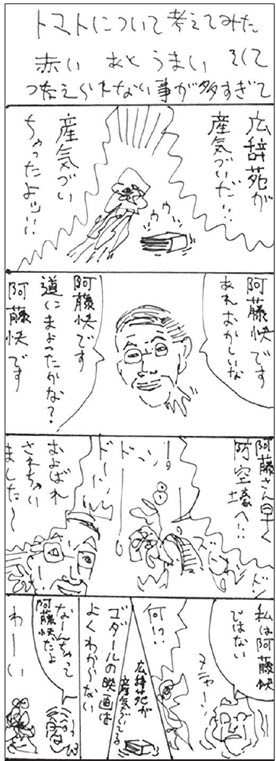 トマトについて考えてみた
赤い あと うまい そして
つたえられない事が多すぎて
広辞苑が
産気づいた!!
産気づい
ちゃったよッ!!
ウウ
阿藤快です
あれおかしいな
阿藤快です
道にまよったかな?
阿藤快です
阿藤さん早く
防空壕へ!!
ドドーン!
ドーン!
およばれ
されちゃい
ました〜
私は阿藤快
ではない
ヌシャー!
何!?
広辞苑が
産気づいてる
ゴダールの映画は
よくわからない
なーんちゃって
阿藤快だよ
わーい